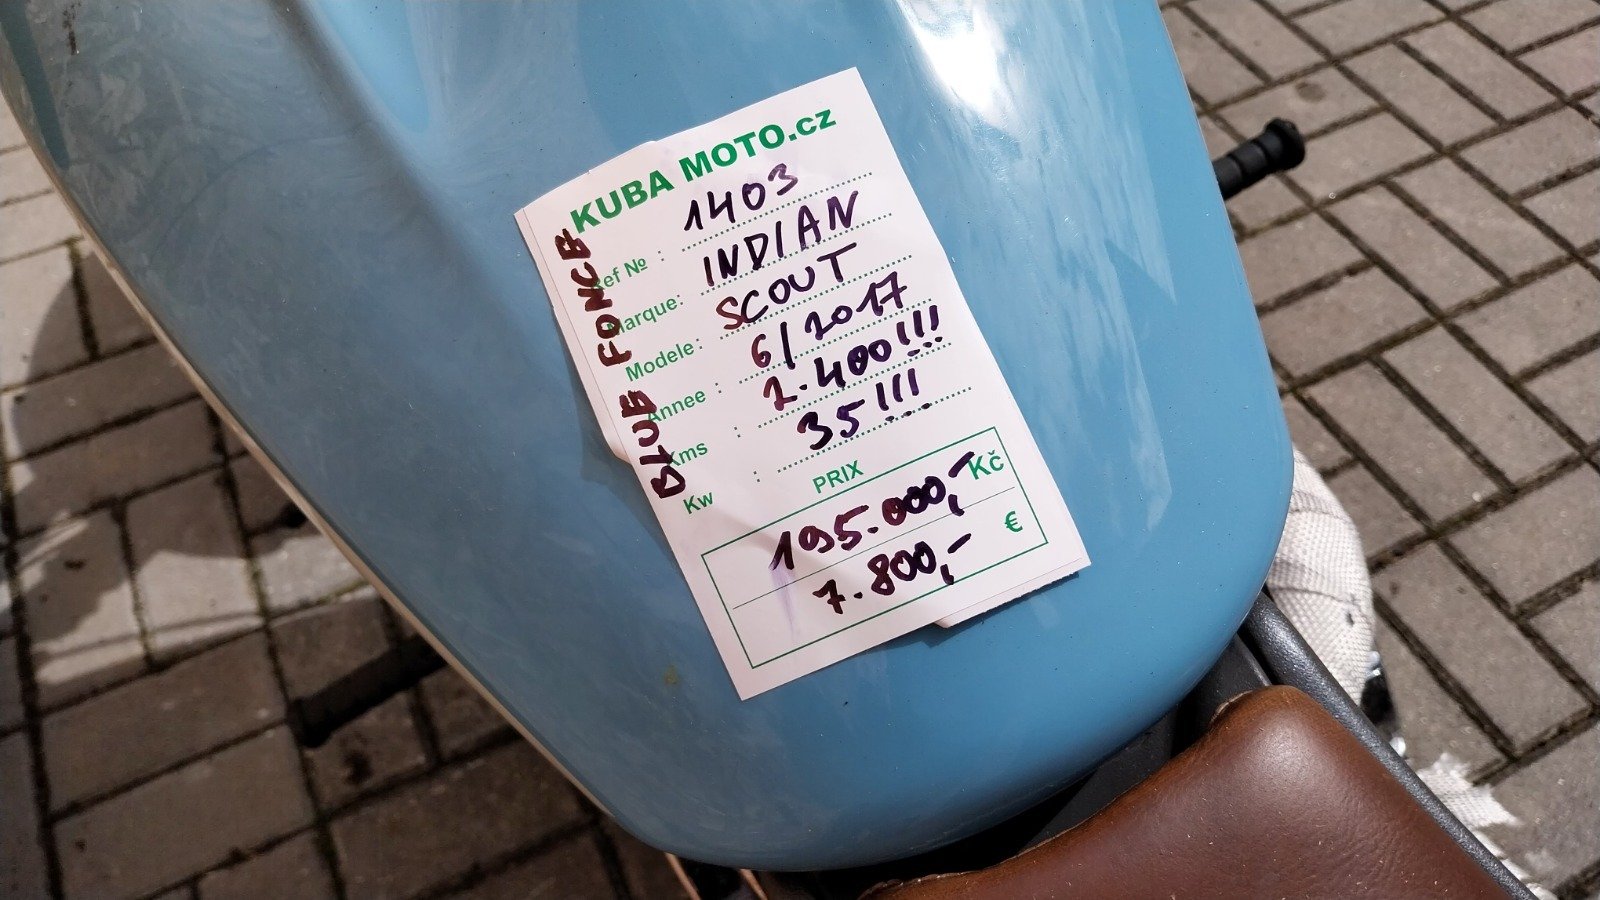 KUBA MOTO.cz
BLUE FONCE
Ref № : 1403
Marque: INDIAN
Modele: SCOUT
Annee : 6/2017
Kms : 2.400!!!
Kw : 35!!!
PRIX
195.000,- Kč
7.800,- €